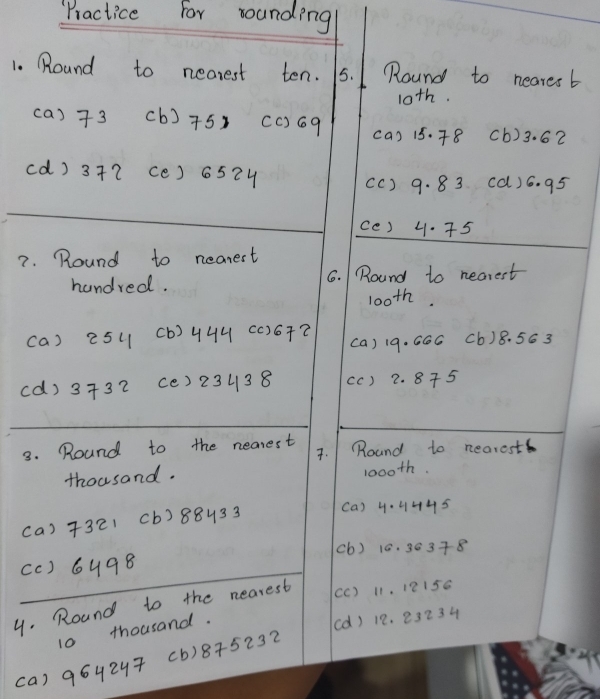 Practice for rounding
1. Round to nearest ten.
(a) 73 (b) 751 (c) 69
(d) 372 (e) 6524
2. Round to nearest
hundred.
(a) 254 (b) 444 (c) 672
(d) 3732 (e) 23438
3. Round to the nearest
thousand.
(a) 7321 (b) 88433
(c) 6498
4. Round to the nearest
10 thousand.
(a) 964247 (b) 875232
5. Round to nearest
10th.
(a) 15.78 (b) 3.62
(c) 9.83 (d) 6.95
(e) 4.75
6. Round to nearest
100th.
(a) 19.666 (b) 8.563
(c) 2.875
7. Round to nearest
1000th.
(a) 4.4445
(b) 16.36378
(c) 11.12156
(d) 12.23234